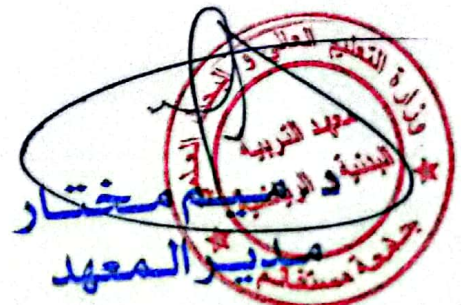 وزارة التعليم العالي و البحث العلمي
معهد التربية
البدنية و الرياضية
جامعة مستغانم
د. ميم مختار
مدير المعهد